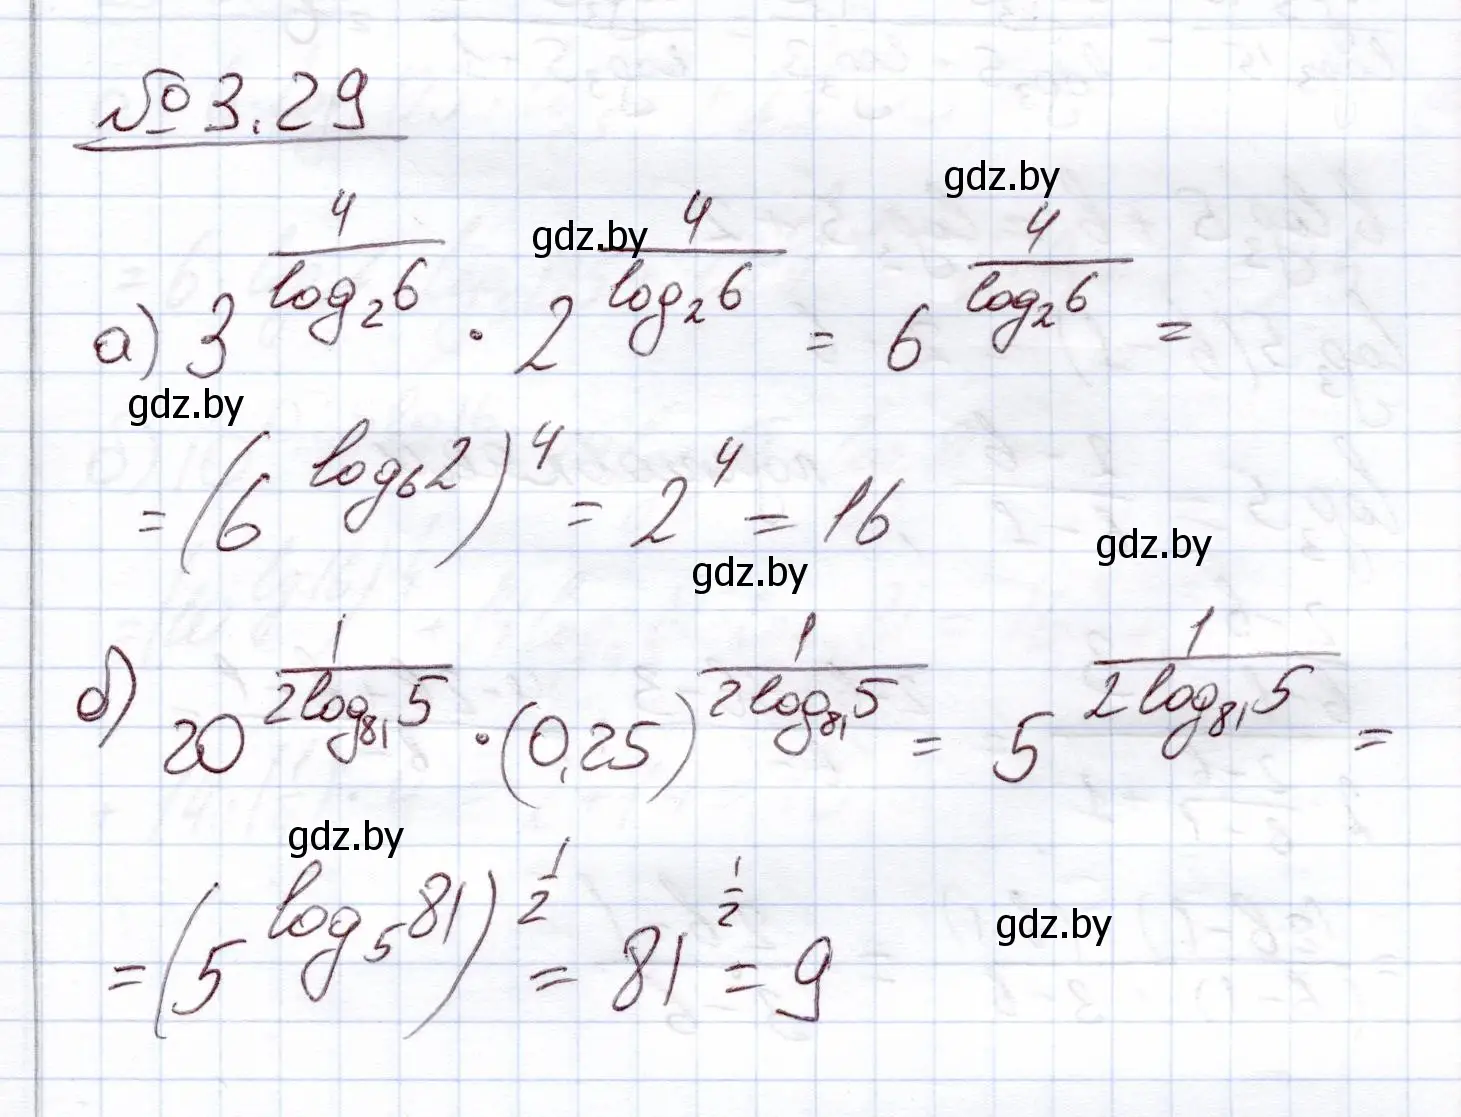 № 3.29
gdz.by
gdz.by
а) 3^(4/log₂6) · 2^(4/log₂6) = 6^(4/log₂6) =
gdz.by
= (6^(log₆2))^4 = 2^4 = 16
gdz.by
gdz.by
б) 20^(1/(2log₈₁5)) · (0,25)^(1/(2log₈₁5)) = 5^(1/(2log₈₁5)) =
gdz.by
= (5^(log₅81))^(1/2) = 81^(1/2) = 9
gdz.by